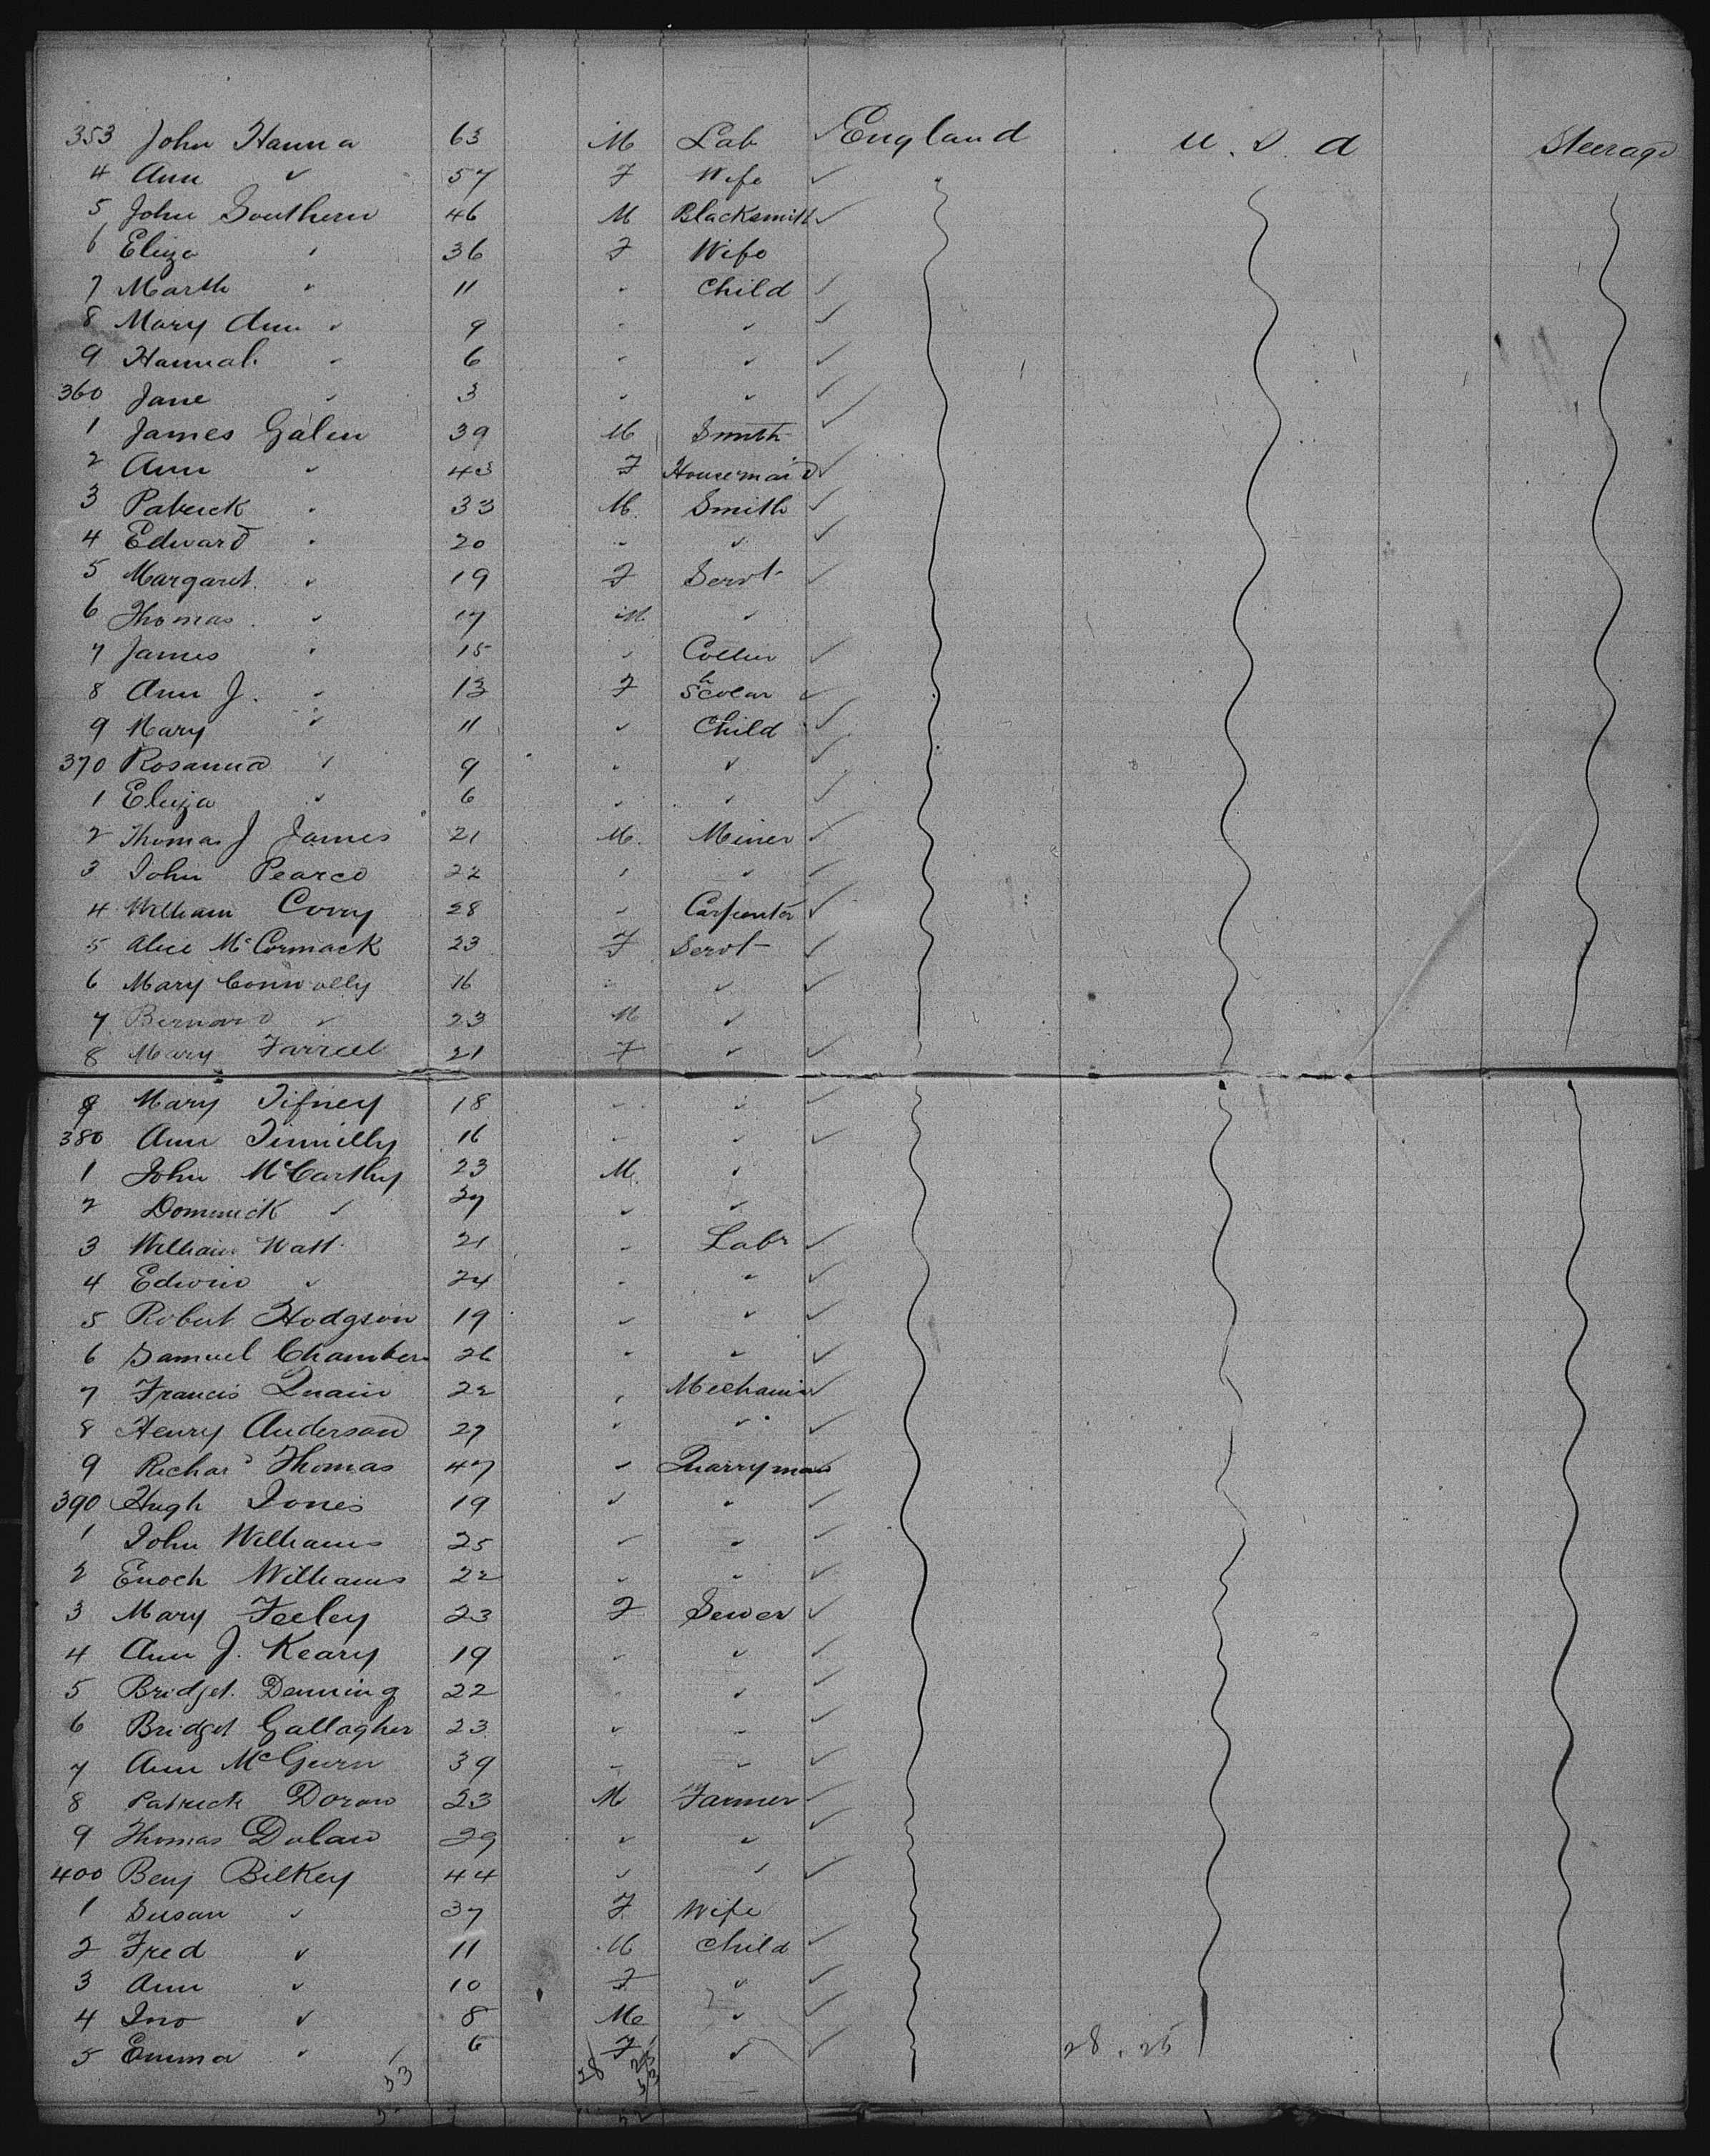 353 John Hanna 63 M Lab England U. S. A Steerage
4 Ann " 57 F Wife
5 John Southern 46 M Blacksmith
6 Eliza " 36 F Wife
7 Marth " 11 " Child
8 Mary Ann " 9 " "
9 Hannah " 6 " "
360 Jane " 3 " "
1 James Galen 39 M Smith
2 Ann " 43 F Housemaid
3 Patrick " 33 M Smith
4 Edward " 20 " "
5 Margaret " 19 F Servt
6 Thomas " 17 M "
7 James " 15 " Collier
8 Ann J. " 13 F Scholar
9 Mary " 11 " Child
370 Rosanna " 9 " "
1 Eliza " 6 " "
2 Thomas J James 21 M. Miner
3 John Pearce 22 " "
4 William Corry 28 " Carpenter
5 Alice McCormack 23 F Servt
6 Mary Connolly 16 " "
7 Bernard " 23 M "
8 Mary Farrell 21 F "
9 Mary Tifney 18 " "
380 Ann 16 " "
1 John McCarthy 23 M "
2 Dominick " 27 " "
3 William Watt 21 " Labr
4 Edwin " 24 " "
5 Robert Hodgson 19 " "
6 Samuel Chambers 26 " "
7 Francis Quain 22 " Mechanic
8 Henry Anderson 27 " "
9 Richard Thomas 47 " Quarryman
390 Hugh Jones 19 " "
1 John Williams 25 " "
2 Enoch Williams 22 " "
3 Mary Feeley 23 F Sewer
4 Ann J. Keary 19 " "
5 Bridget Denning 22 " "
6 Bridget Gallagher 23 " "
7 Ann McGurn 39 " "
8 Patrick Doran 23 M Farmer
9 Thomas Dolan 29 " "
400 Benj Bilkey 44 " "
1 Susan " 37 F Wife
2 Fred " 11 M Child
3 Ann " 10 F "
4 Jno " 8 M "
5 Emma " 6 F " 28 . 25
53 28 25
53